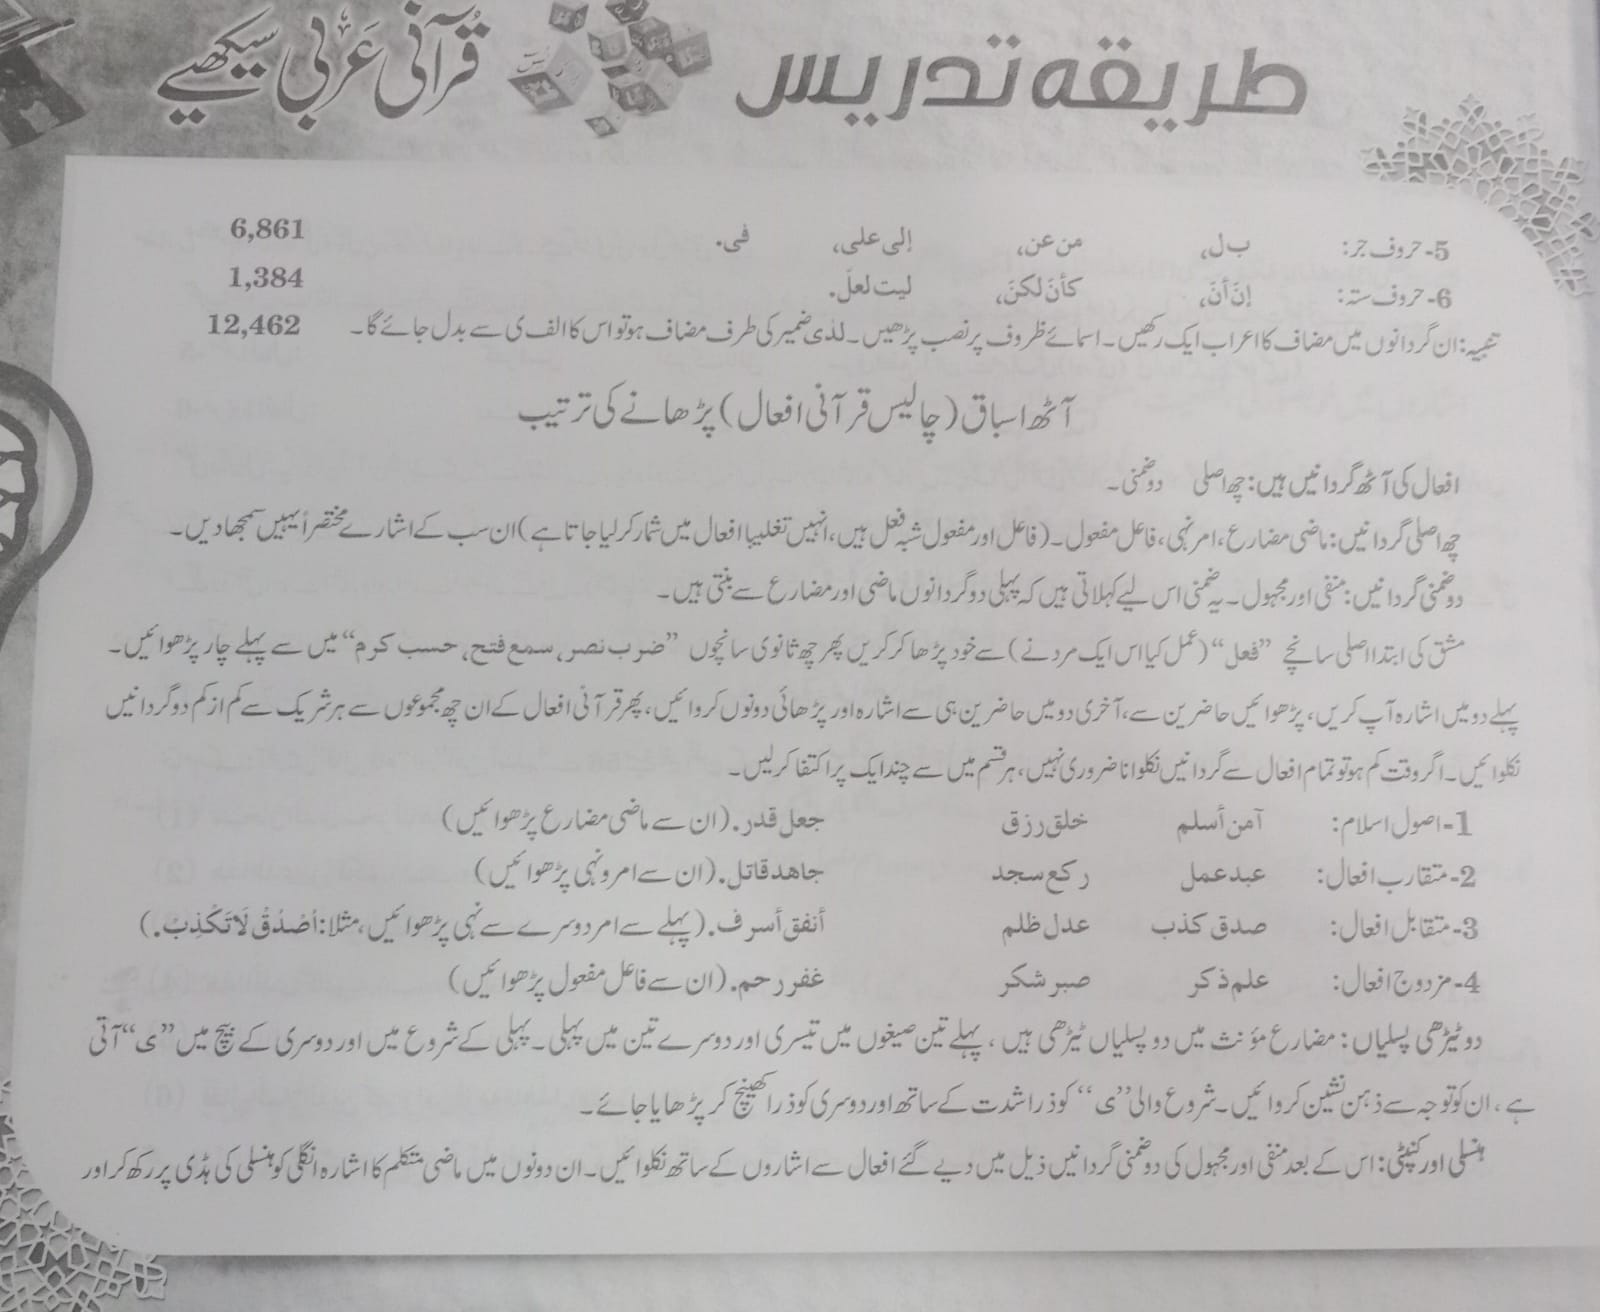 طریقہ تدریس
قُرآنی عَربی سیکھیے
5- حروف جر: ب ل، من عن، إلى على، فی. 6,861
6- حروف ستہ: إنّ أنّ، كأنّ لكنّ، ليت لعلّ. 1,384
تنبیہ: ان گردانوں میں مضاف کا اعراب ایک رکھیں۔ اسمائے ظروف پر نصب پڑھیں۔ لدٰی ضمیر کی طرف مضاف ہو تو اس کا الف ی سے بدل جائے گا۔ 12,462
آٹھ اسباق (چالیس قرآنی افعال) پڑھانے کی ترتیب
افعال کی آٹھ گردانیں ہیں: چھ اصلی دو ضمنی۔
چھ اصلی گردانیں: ماضی مضارع، امر نہی، فاعل مفعول۔ (فاعل اور مفعول شبہ فعل ہیں، انہیں تغلیبا افعال میں شمار کر لیا جاتا ہے) ان سب کے اشارے مختصراً یہیں سمجھا دیں۔
دو ضمنی گردانیں: منفی اور مجہول۔ یہ ضمنی اس لیے کہلاتی ہیں کہ پہلی دو گردانوں ماضی اور مضارع سے بنتی ہیں۔
مشق کی ابتدا اصلی سانچے ”فعل“ (عمل کیا اس ایک مرد نے) سے خود پڑھا کر کریں پھر چھ ثانوی سانچوں ”ضرب نصر، سمع فتح، حسب كرم“ میں سے پہلے چار پڑھوائیں۔
پہلے دو میں اشارہ آپ کریں، پڑھوائیں حاضرین سے، آخری دو میں حاضرین ہی سے اشارہ اور پڑھائی دونوں کروائیں، پھر قرآنی افعال کے ان چھ مجموعوں سے ہر شریک سے کم از کم دو گردانیں
نکلوائیں۔ اگر وقت کم ہو تو تمام افعال سے گردانیں نکلوانا ضروری نہیں، ہر قسم میں سے چند ایک پر اکتفا کر لیں۔
1- اصول اسلام: آمن أسلم خلق رزق جعل قدر. (ان سے ماضی مضارع پڑھوائیں)
2- متقارب افعال: عبد عمل ركع سجد جاهد قاتل. (ان سے امر و نہی پڑھوائیں)
3- متقابل افعال: صدق كذب عدل ظلم أنفق أسرف. (پہلے سے امر دوسرے سے نہی پڑھوائیں، مثلا: اُصْدُقْ لَا تَكْذِبْ.)
4- مزدوج افعال: علم ذكر صبر شكر غفر رحم. (ان سے فاعل مفعول پڑھوائیں)
دو ٹیڑھی پسلیاں: مضارع مؤنث میں دو پسلیاں ٹیڑھی ہیں، پہلے تین صیغوں میں تیسری اور دوسرے تین میں پہلی۔ پہلی کے شروع میں اور دوسری کے بیچ میں ”ی“ آتی
ہے، ان کو توجہ سے ذہن نشین کروائیں۔ شروع والی ”ی“ کو ذرا شدت کے ساتھ اور دوسری کو ذرا کھینچ کر پڑھایا جائے۔
ہنسلی اور کنپٹی: اس کے بعد منفی اور مجہول کی دو ضمنی گردانیں ذیل میں دیے گئے افعال سے اشاروں کے ساتھ نکلوائیں۔ ان دونوں میں ماضی متکلم کا اشارہ انگلی کو ہنسلی کی ہڈی پر رکھ کر اور